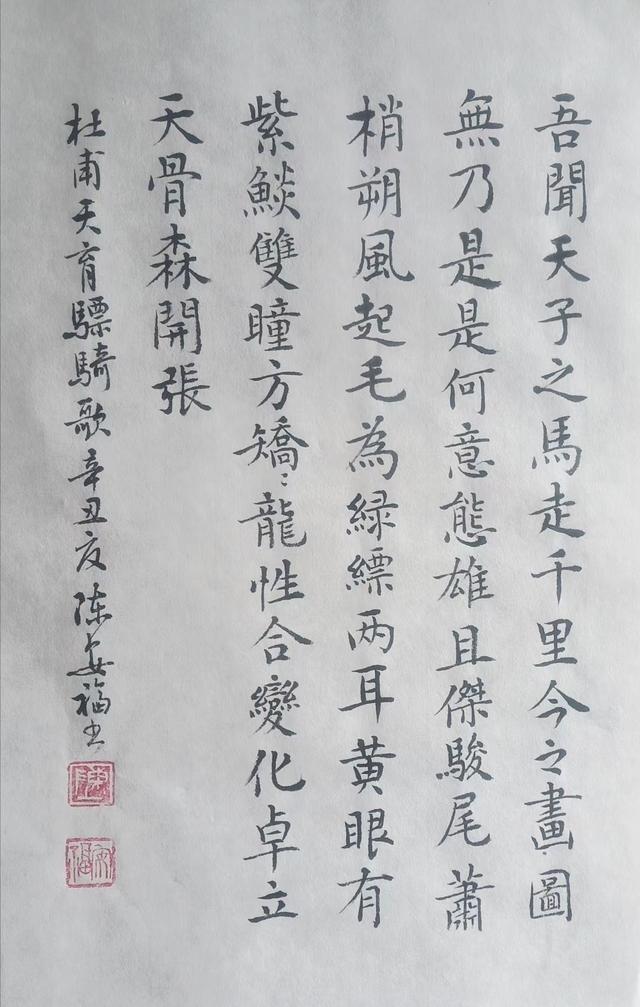 吾聞天子之馬走千里今之畫圖
無乃是是何意態雄且傑駿尾蕭
梢朔風起毛為緑縹兩耳黄眼有
紫燄雙瞳方矯〻龍性合變化卓立
天骨森開張
杜甫天育驃騎歌辛丑夏陈安福书